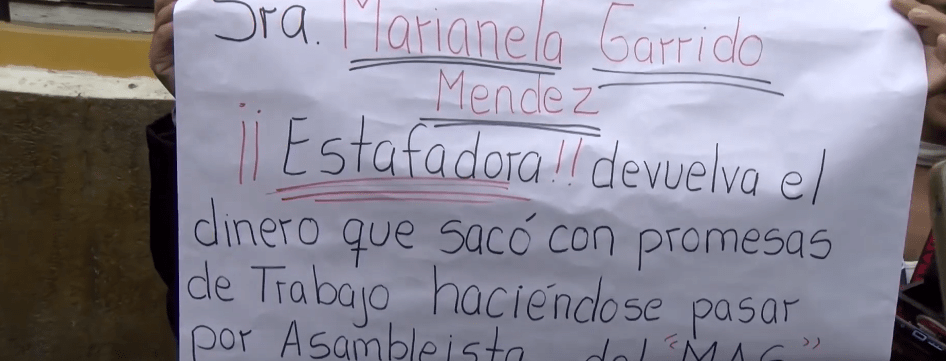 Sra. Marianela Garrido
Mendez
¡¡Estafadora!! devuelva el
dinero que sacó con promesas
de Trabajo haciéndose pasar
por Asambleista del "MAS"